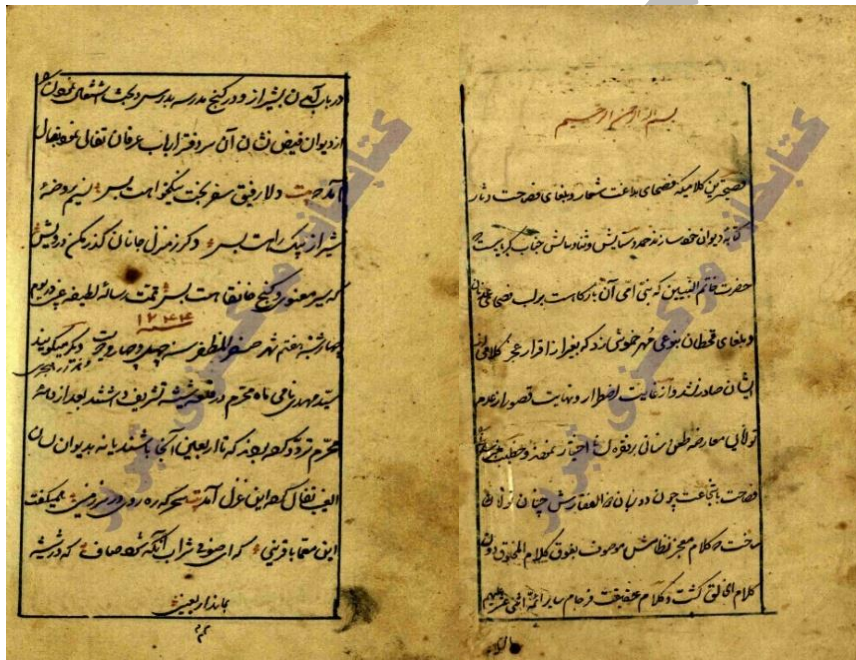 بسم الله الرحمن الرحیم
فصیح‌ترین کلامیکه فصحای بلاغت شعار و بلغای فصاحت دثار
دیوان خود سازند حمد و ستایش و ثنا و نیایش جناب کبریاست
حضرت خاتم النبیین که نبی امی آن بارگاهست بر لب فصحای عدنان
و بلغای قحطان بنوعی مهر خموشی زد که بغیر از اقرار عجز کلامی از
ایشان صادر نشد و از غایت اضطرار و نهایت قصور از عدم
توانایی معارضه طعن سنانی بر نمودند و خطیب
فصاحت با شجاعت چون دو زبان ذوالفقارش چنان
ساخت که کلام معجز نظامش موصوف بفوق کلام المخلوق و دون
کلام الخالق گشت و کلام حقیقت فرجام سایر ائمه
در باب آمدن بشیراز و در کنج مدرسه بدرس و بحث اشتغال نمودن
از دیوان فیض نشان آن سر دفتر ارباب عرفان تفالی نمود بفال
آمد بیت دلا رفیق سفر بخت نیکخواهت بس نسیم روضهٔ
شیراز پیک راهت بس دگر ز منزل جانان گذر مکن درویش
که سیر معنوی و کنج خانقاهت بس تمت رساله لطیفه غیبی در یوم
۱۲۴۴ سنه
چهارشنبه هفتم شهر صفر المظفر سنه چهل و چهار دیگر میگویند
سید مهدی نامی ماه محرم در قلعه شیشه تشریف داشتند بعد از
محرم تردد که بودند که تا اربعین آنجا باشند یا نه بدیوان لسان
الغیب تفال که این غزل آمد سحرگه ره روی در سرزمینی همیگفت
این معما با قرینی که ای صوفی شراب آنگه شود صاف که در شیشه
بماند اربعینی